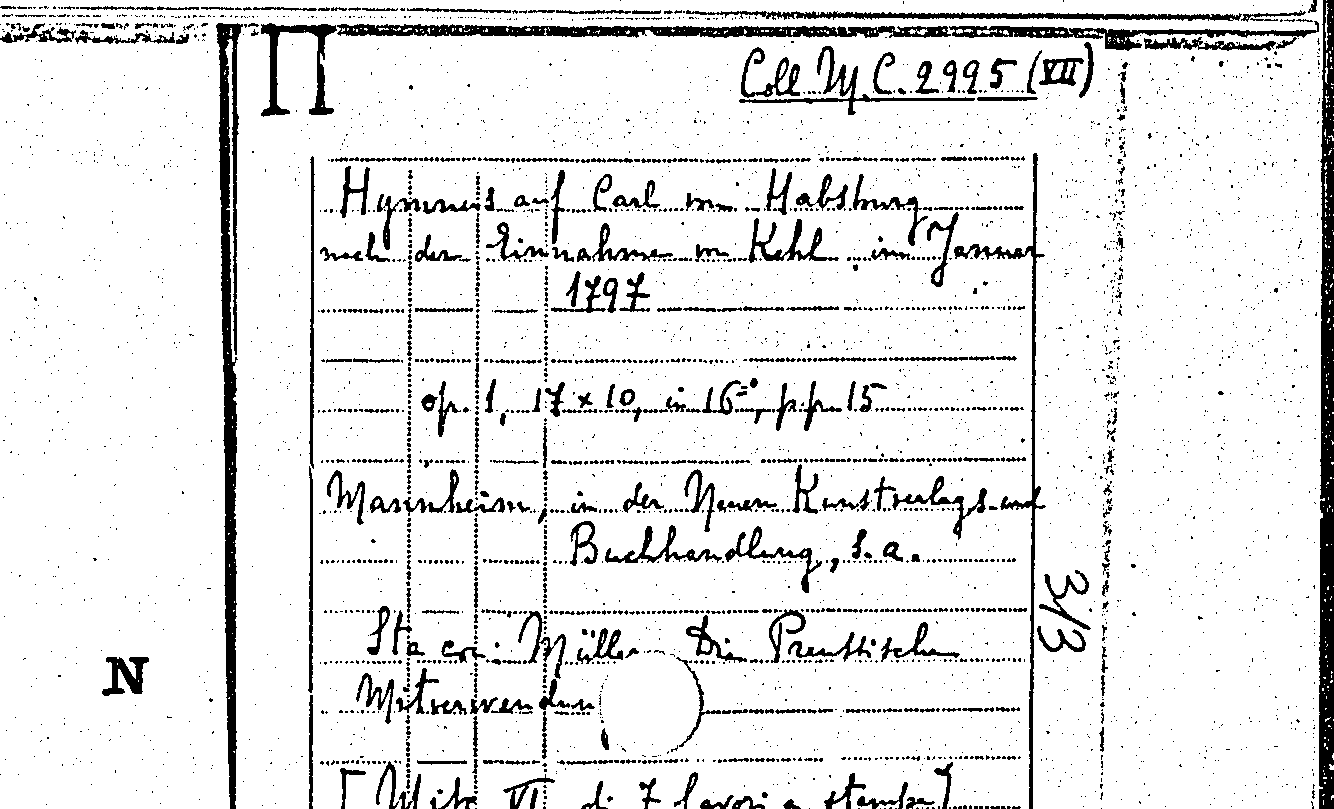 Π
Coll M.C. 2995 (VII)
Hymnus auf Carl von Habsburg
nach der Einnahme von Kehl im Januar
1797
op. 1, 17 x 10, in 16º, pp. 15
Mannheim, in der Neuen Kunstverlags-und
Buchhandlung, s.a.
313
Sta con: Müller Die Preussische
N
Mitverwendun
[Mito VI di 7 lavori a stampa]